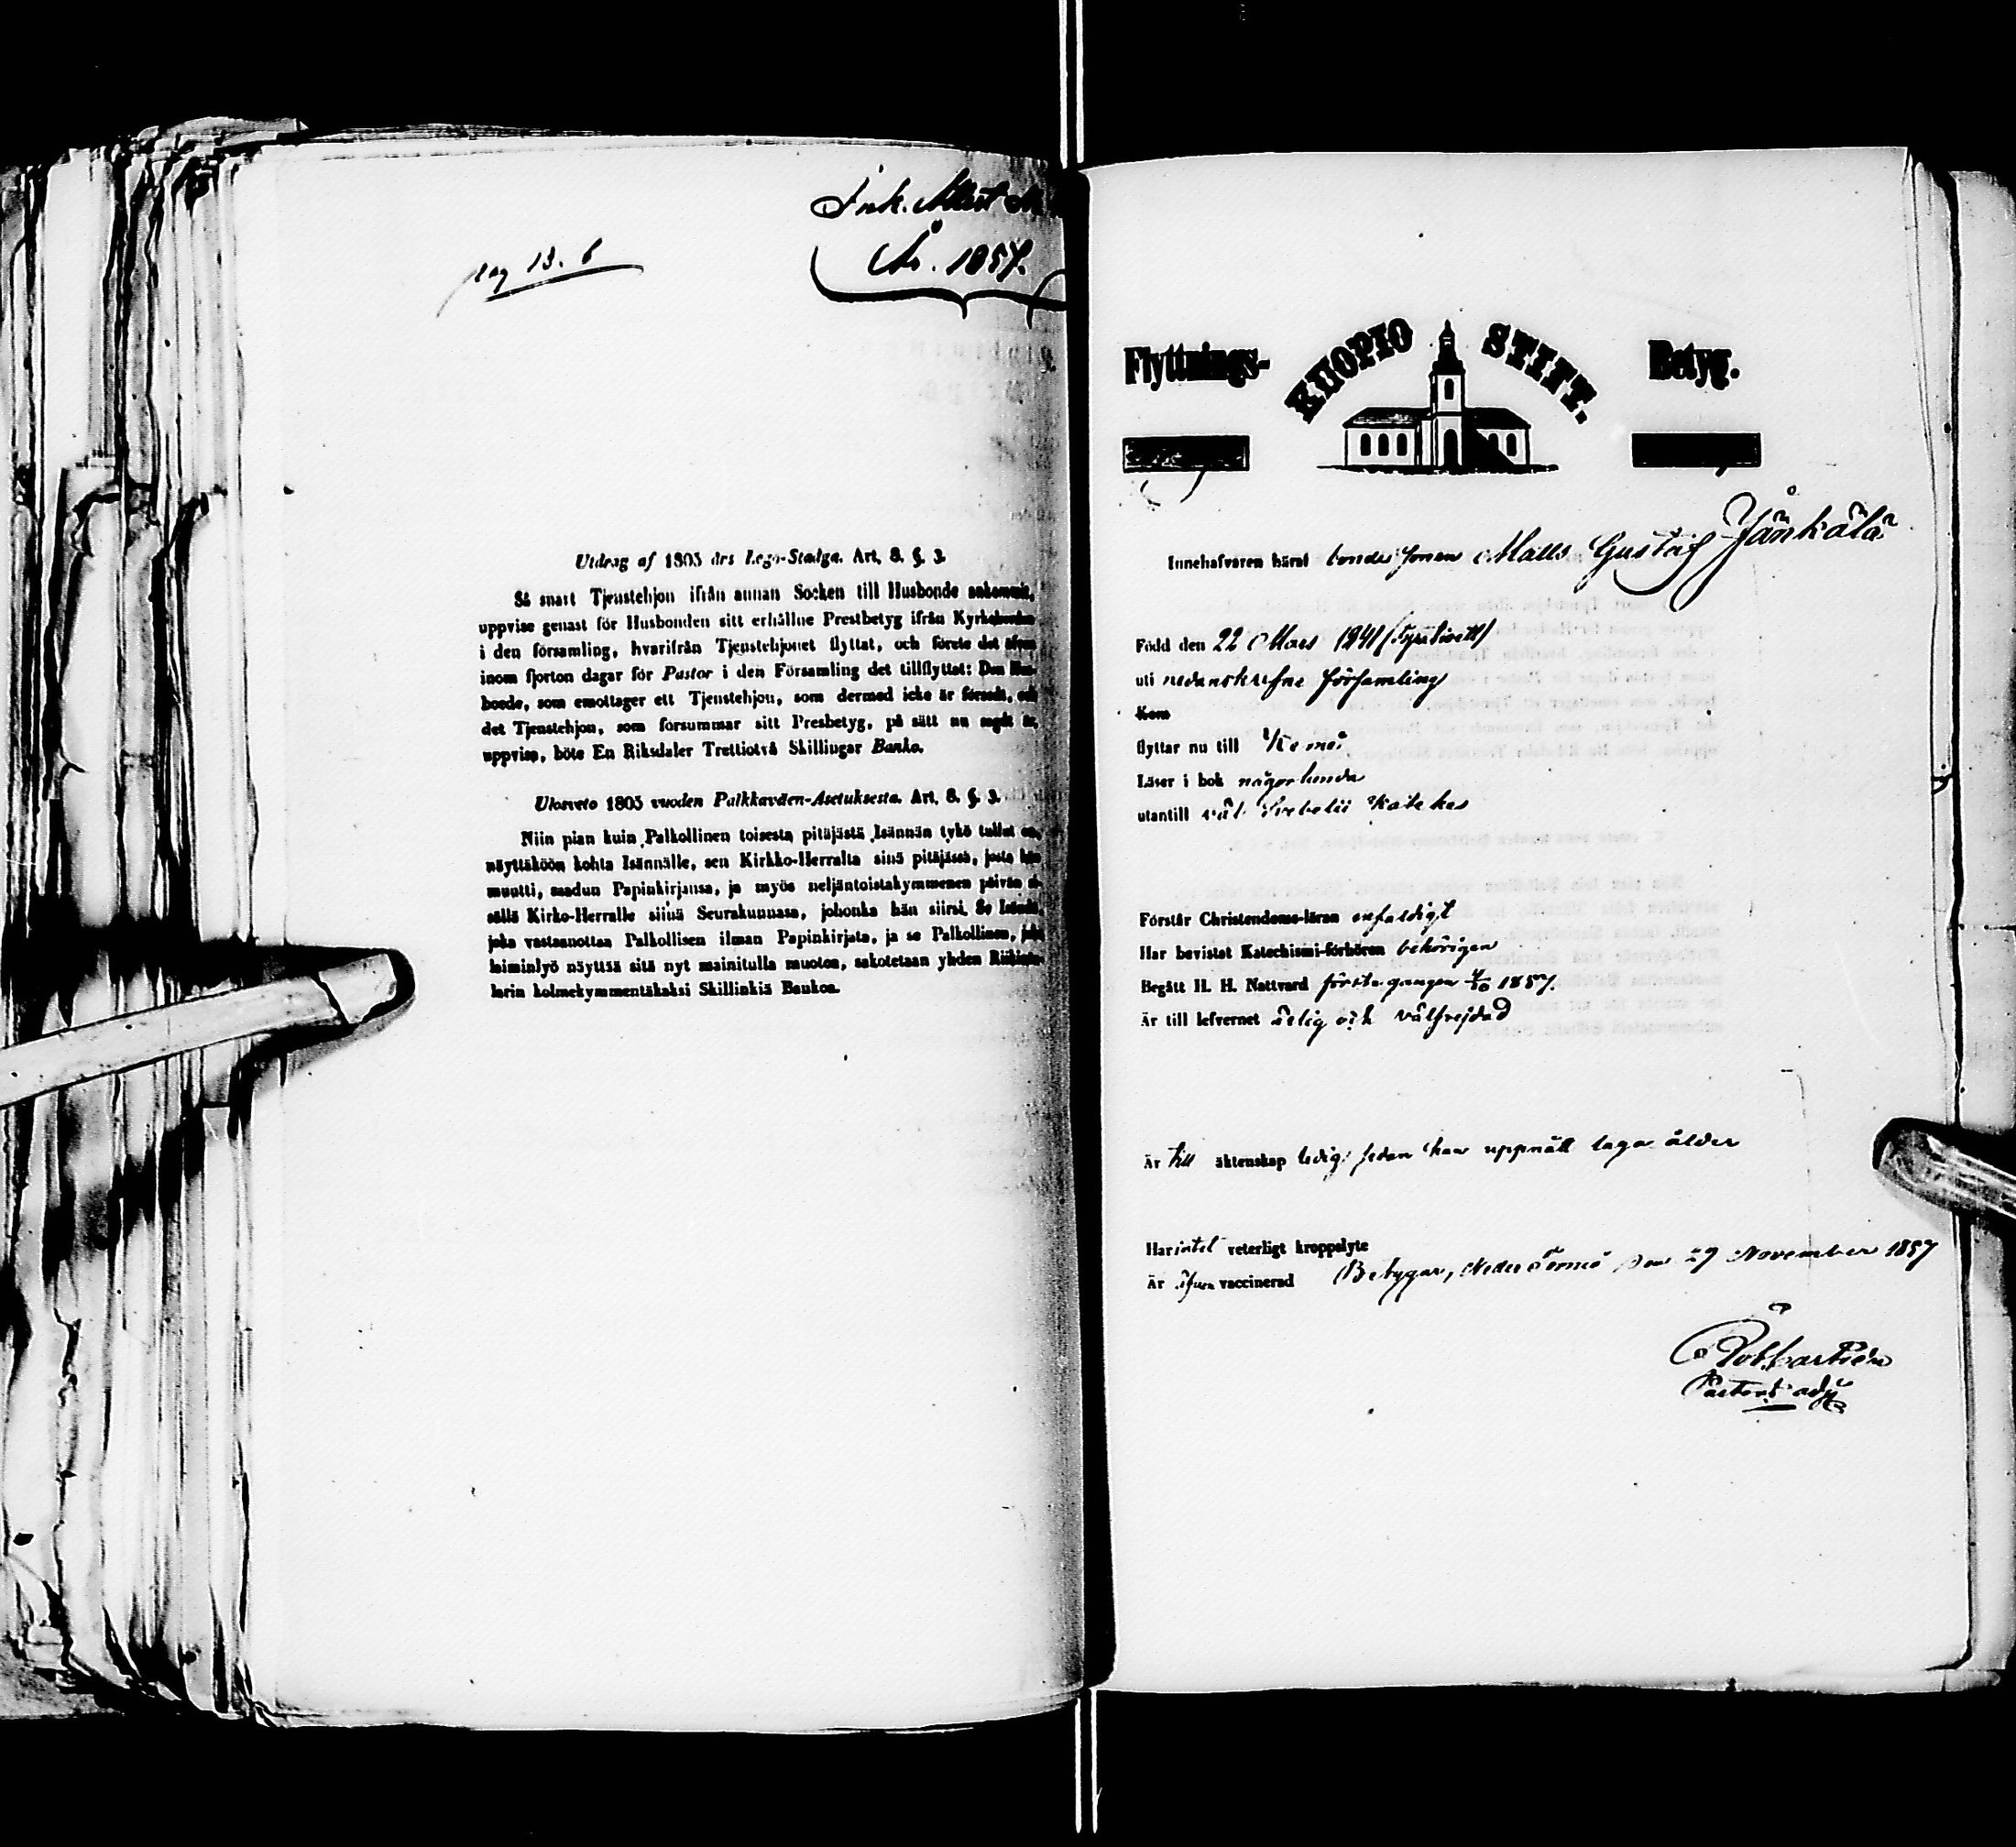 Ink. Attest
År. 1857.
pag 13. 6
Utdrag af 1805 års Lego-Stadga. Art. 8. §. 3.
Så snart Tjenstehjon ifrån annan Socken till Husbonde ankommit,
uppvise genast för Husbonden sitt erhållne Prestbetyg ifrån
i den församling, hvarifrån Tjenstehjonet flyttat, och förete det
inom fjorton dagar för Pastor i den Församling det tillflyttat: Den Hus-
bonde, som emottager ett Tjenstehjon, som dermed icke är försedt, och
det Tjenstehjon, som försummar sitt Presbetyg, på sätt nu sagdt är,
uppvisa, böte En Riksdaler Trettiotvå Skillingar Banko.
Ulosveto 1805 vuoden Palkkaväen-Asetuksesta. Art. 8. §. 3.
Niin pian kuin Palkollinen toisesta pitäjästä Isännän tykö tullut on,
näyttäköön kohta Isännälle, sen Kirkko-Herralta siinä pitäjässä, josta hän
muutti, saadun Papinkirjansa, ja myös neljäntoistakymmenen päivän si-
sällä Kirko-Herralle siinä Seurakunnasa, johonka hän siirsi. Se Isändä,
joka vastaanottaa Palkollisen ilman Papinkirjata, ja se Palkollinen, joka
laiminlyö näyttää sitä nyt mainitulla muoton, sakotetaan yhden Riikinta-
larin kolmekymmentäkaksi Skillinkiä Bankoa.
Flyttnings- KUOPIO STIFT. Betyg.
Innehafvaren häraf bondesonen Matts Gustaf Jänkälä
Född den 22 Mars 1841
uti nedanskrefne församling
Kom
flyttar nu till Kemi
Läser i bok någorlunda
utantill väl Svebelii Kateches
Förstår Christendoms-läran enfaldigt
Har bevistat Katechismi-förhören behörigen
Begått H. H. Nattvard första gången 1857.
Är till lefvernet ärlig och välfrejdad
Är till äktenskap ledig sedan han uppnått laga ålder
Har intet veterligt kroppslyte
Är äfven vaccinerad Betygar, Neder Torneå den 29 November 1857
Pastors adj